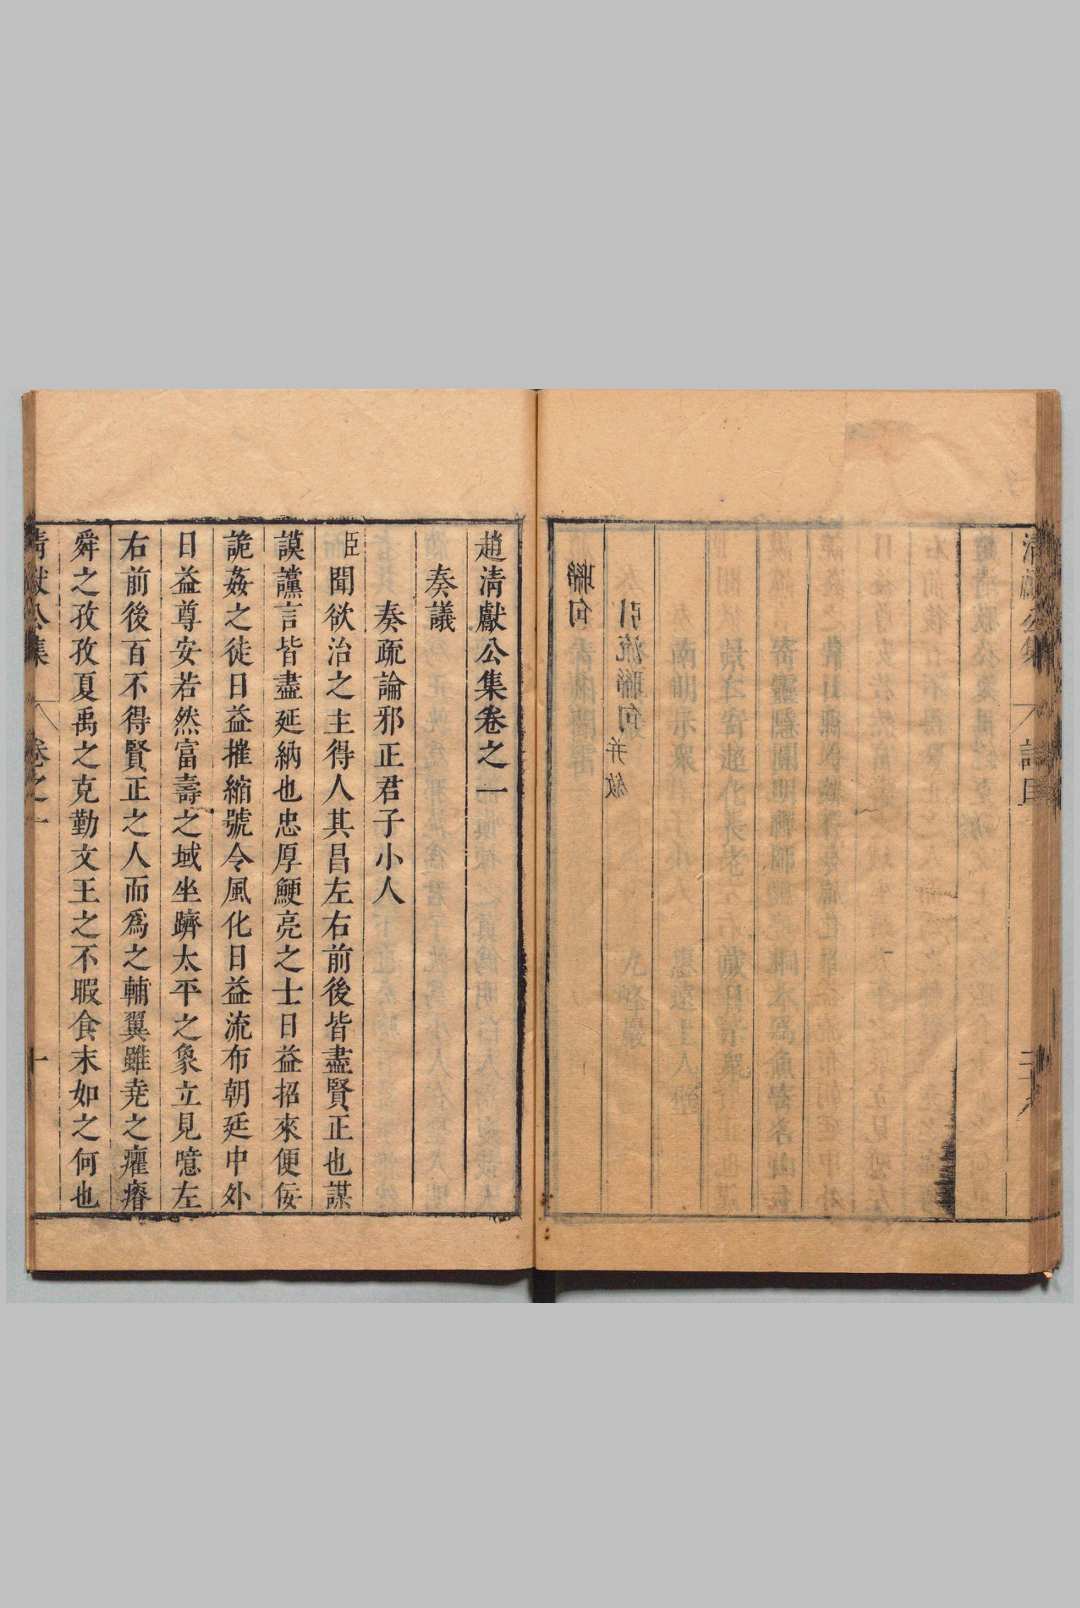 清獻公集 詩目
引流聯句并敘
聯句
趙清獻公集卷之一
奏議
奏疏論邪正君子小人
臣聞欲治之主得人其昌左右前後皆盡賢正也謀
謨讜言皆盡延納也忠厚鯁亮之士日益招來便佞
詭姦之徒日益摧縮號令風化日益流布朝廷中外
日益尊安若然富壽之域坐躋太平之象立見噫左
右前後百不得賢正之人而為之輔翼雖堯之癯瘠
舜之孜孜夏禹之克勤文王之不暇食末如之何也
清獻公集 卷之一 十